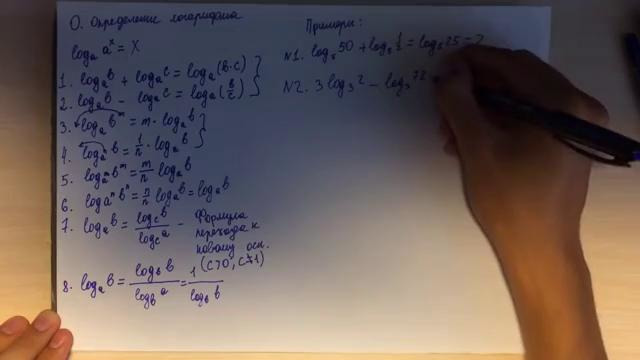 0. Определение логарифма
logₐ aˣ = x
1. logₐ b + logₐ c = logₐ(b·c)
2. logₐ b − logₐ c = logₐ(b/c)
3. logₐ bᵐ = m · logₐ b
4. logₐⁿ b = 1/n · logₐ b
5. logₐⁿ bᵐ = m/n logₐ b
6. log aⁿ bⁿ = n/n logₐ b = logₐ b
7. logₐ b = log_c b / log_c a – Формула
перехода к
новому осн.
(c>0, c≠1)
8. logₐ b = log_b b / log_b a = 1 / log_b b
Примеры:
N1. log₅ 50 + log₅ 1/2 = log₅ 25 = 2
N2. 3 log₃ 2 − log₃ 72